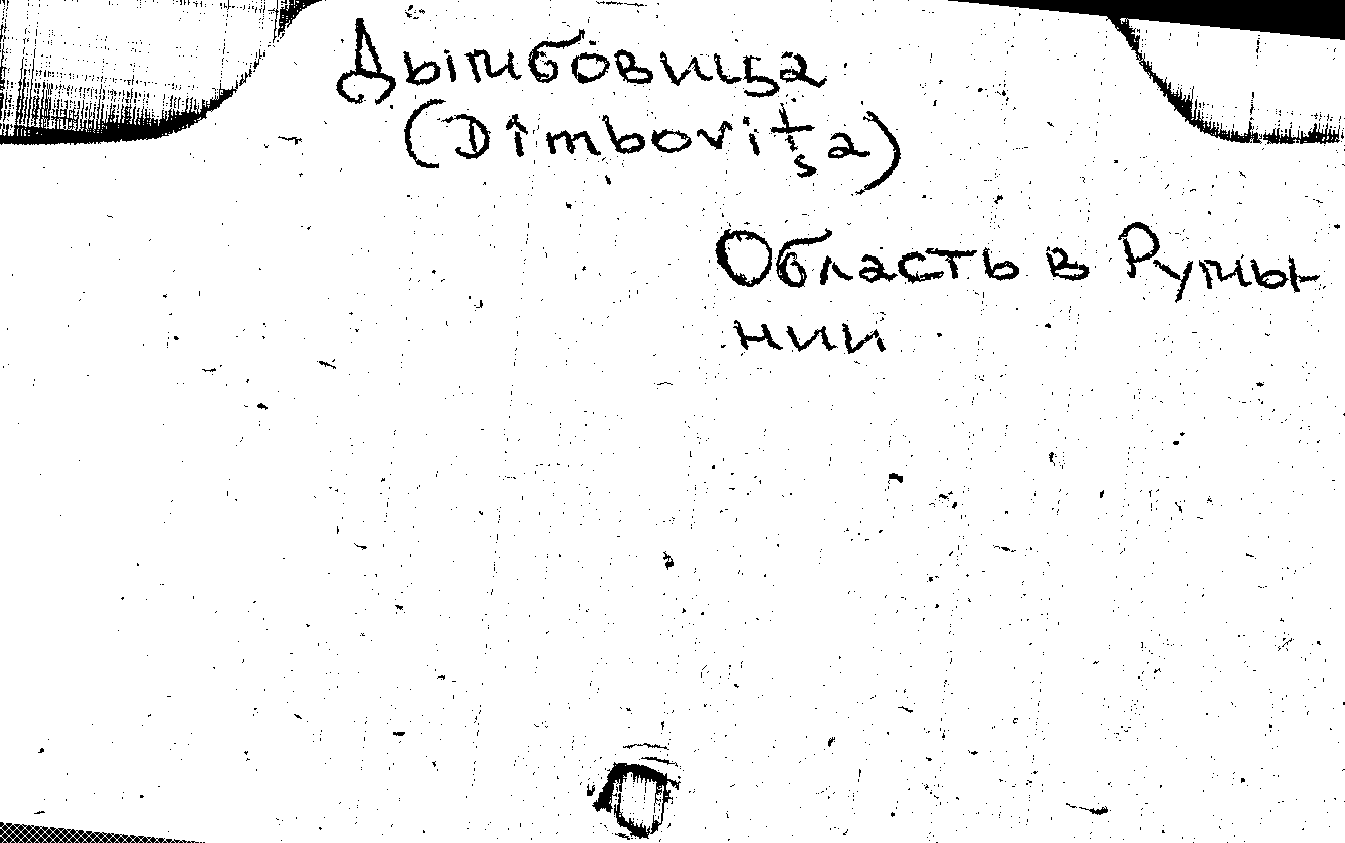 Дымбовица
(Dîmboviţa)
Область в Румы-
нии